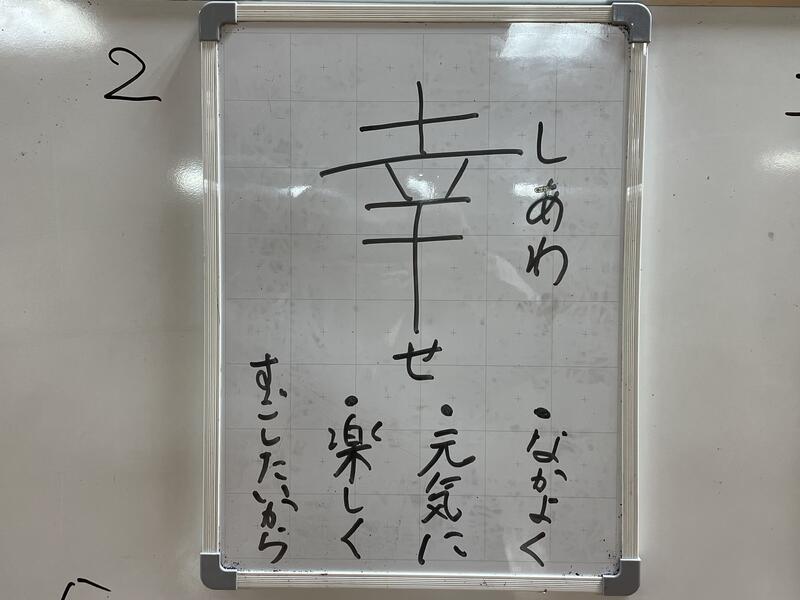 しあわ
幸せ
・なかよく
・元気に
・楽しく
すごしたいから
2